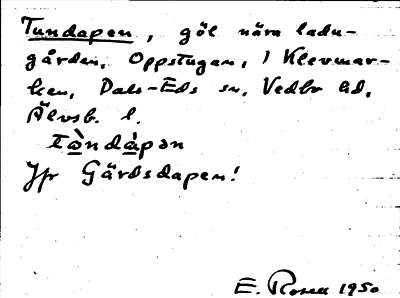 Tundapen, göl nära ladu-
gården, Oppstugan, i Klevmar-
ken, Dals-Eds sn, Vedbo hd,
Älvsb. l.
Jfr Gårdsdapen!
E. Rosell 1950